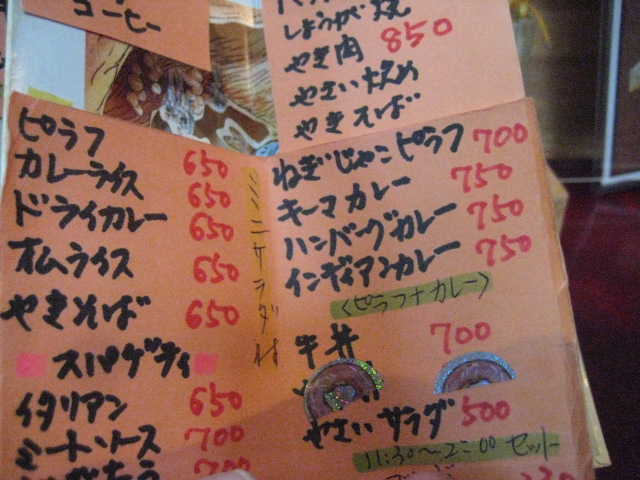 コーヒー
しょうが焼
やき肉 850
やさい炒め
やきそば
ピラフ 650
カレーライス 650
ドライカレー 650
オムライス 650
やきそば 650
ミニサラダ付
スパゲティ
イタリアン 650
ミートソース 700
700
ねぎじゃこピラフ 700
キーマカレー 750
ハンバーグカレー 750
インディアンカレー 750
<ピラフ+カレー>
牛丼 700
やさいサラダ 500
11:30〜2:00 セット